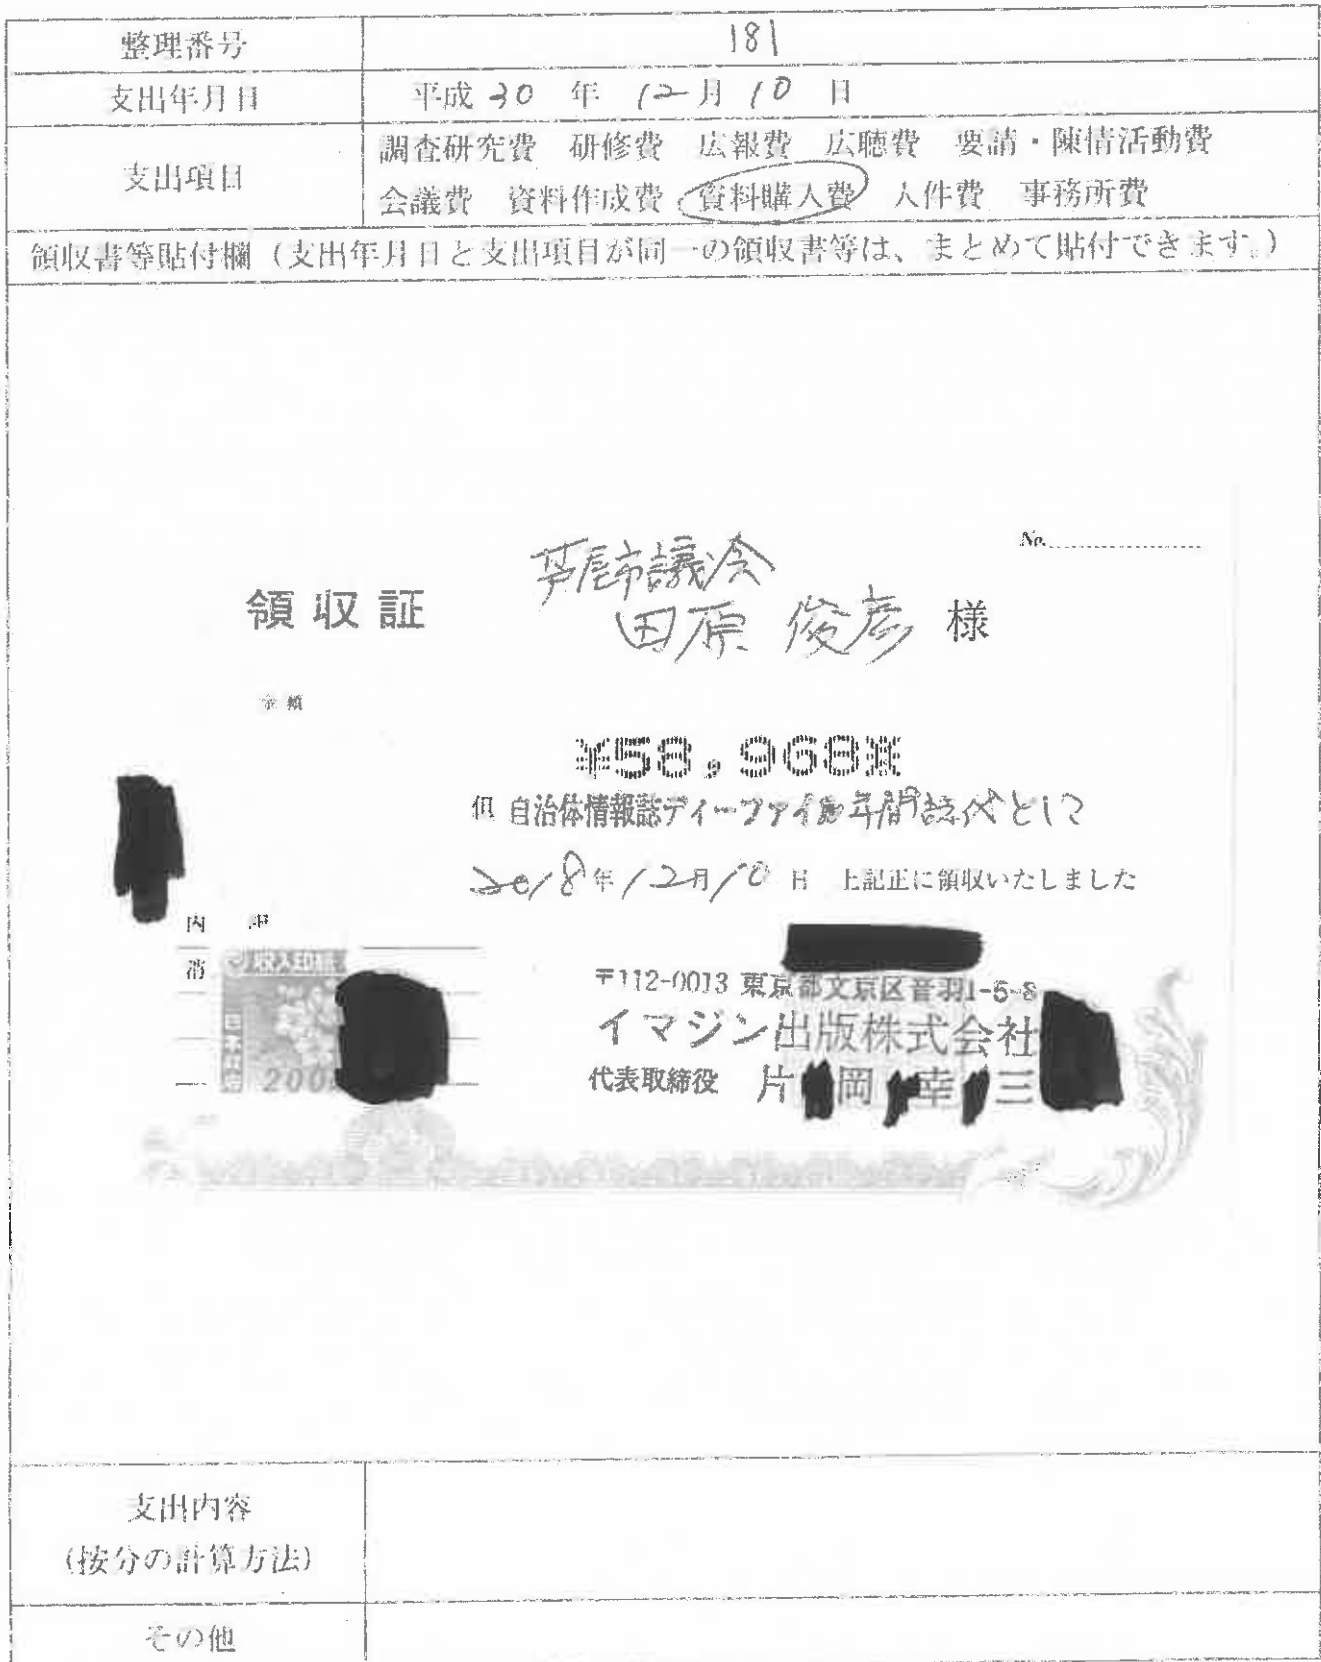 整理番号 181
支出年月日 平成 30 年 12 月 10 日
支出項目
調査研究費 研修費 広報費 広聴費 要請・陳情活動費
会議費 資料作成費 資料購入費 人件費 事務所費
領収書等貼付欄（支出年月日と支出項目が同一の領収書等は、まとめて貼付できます。）
No.
芦屋市議会
領収証 田原 俊彦 様
金額
¥58,968※
但 自治体情報誌ディーファイル年間誌代として
2018年12月10日 上記正に領収いたしました
内 訳
消
収入印紙
200
〒112-0013 東京都文京区音羽1-5-8
イマジン出版株式会社
代表取締役 片岡幸三
支出内容
（按分の計算方法）
その他